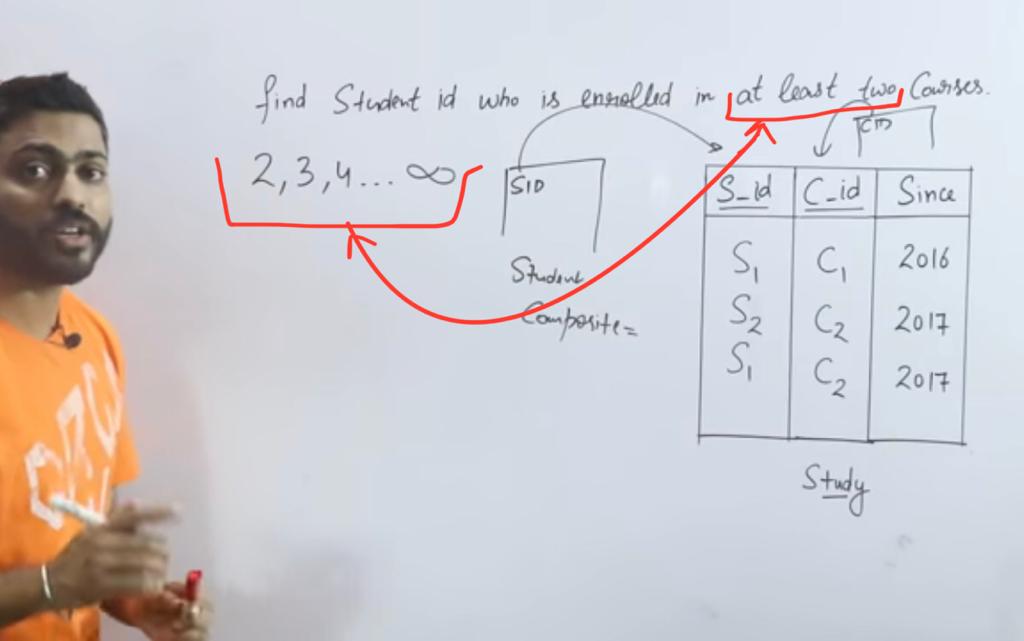 find Student id who is enrolled in at least two Courses.
2, 3, 4 ... ∞
SID
Student
Composite =
CID
S_id C_id Since
S1 C1 2016
S2 C2 2017
S1 C2 2017
Study